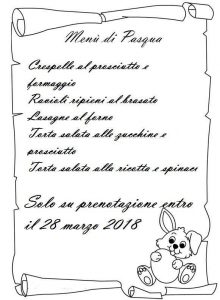 Menù di Pasqua
Crespelle al prosciutto e
formaggio
Ravioli ripieni al brasato
Lasagne al forno
Torta salata alle zucchine e
prosciutto
Torta salata alla ricotta e spinaci
Solo su prenotazione entro
il 28 marzo 2018